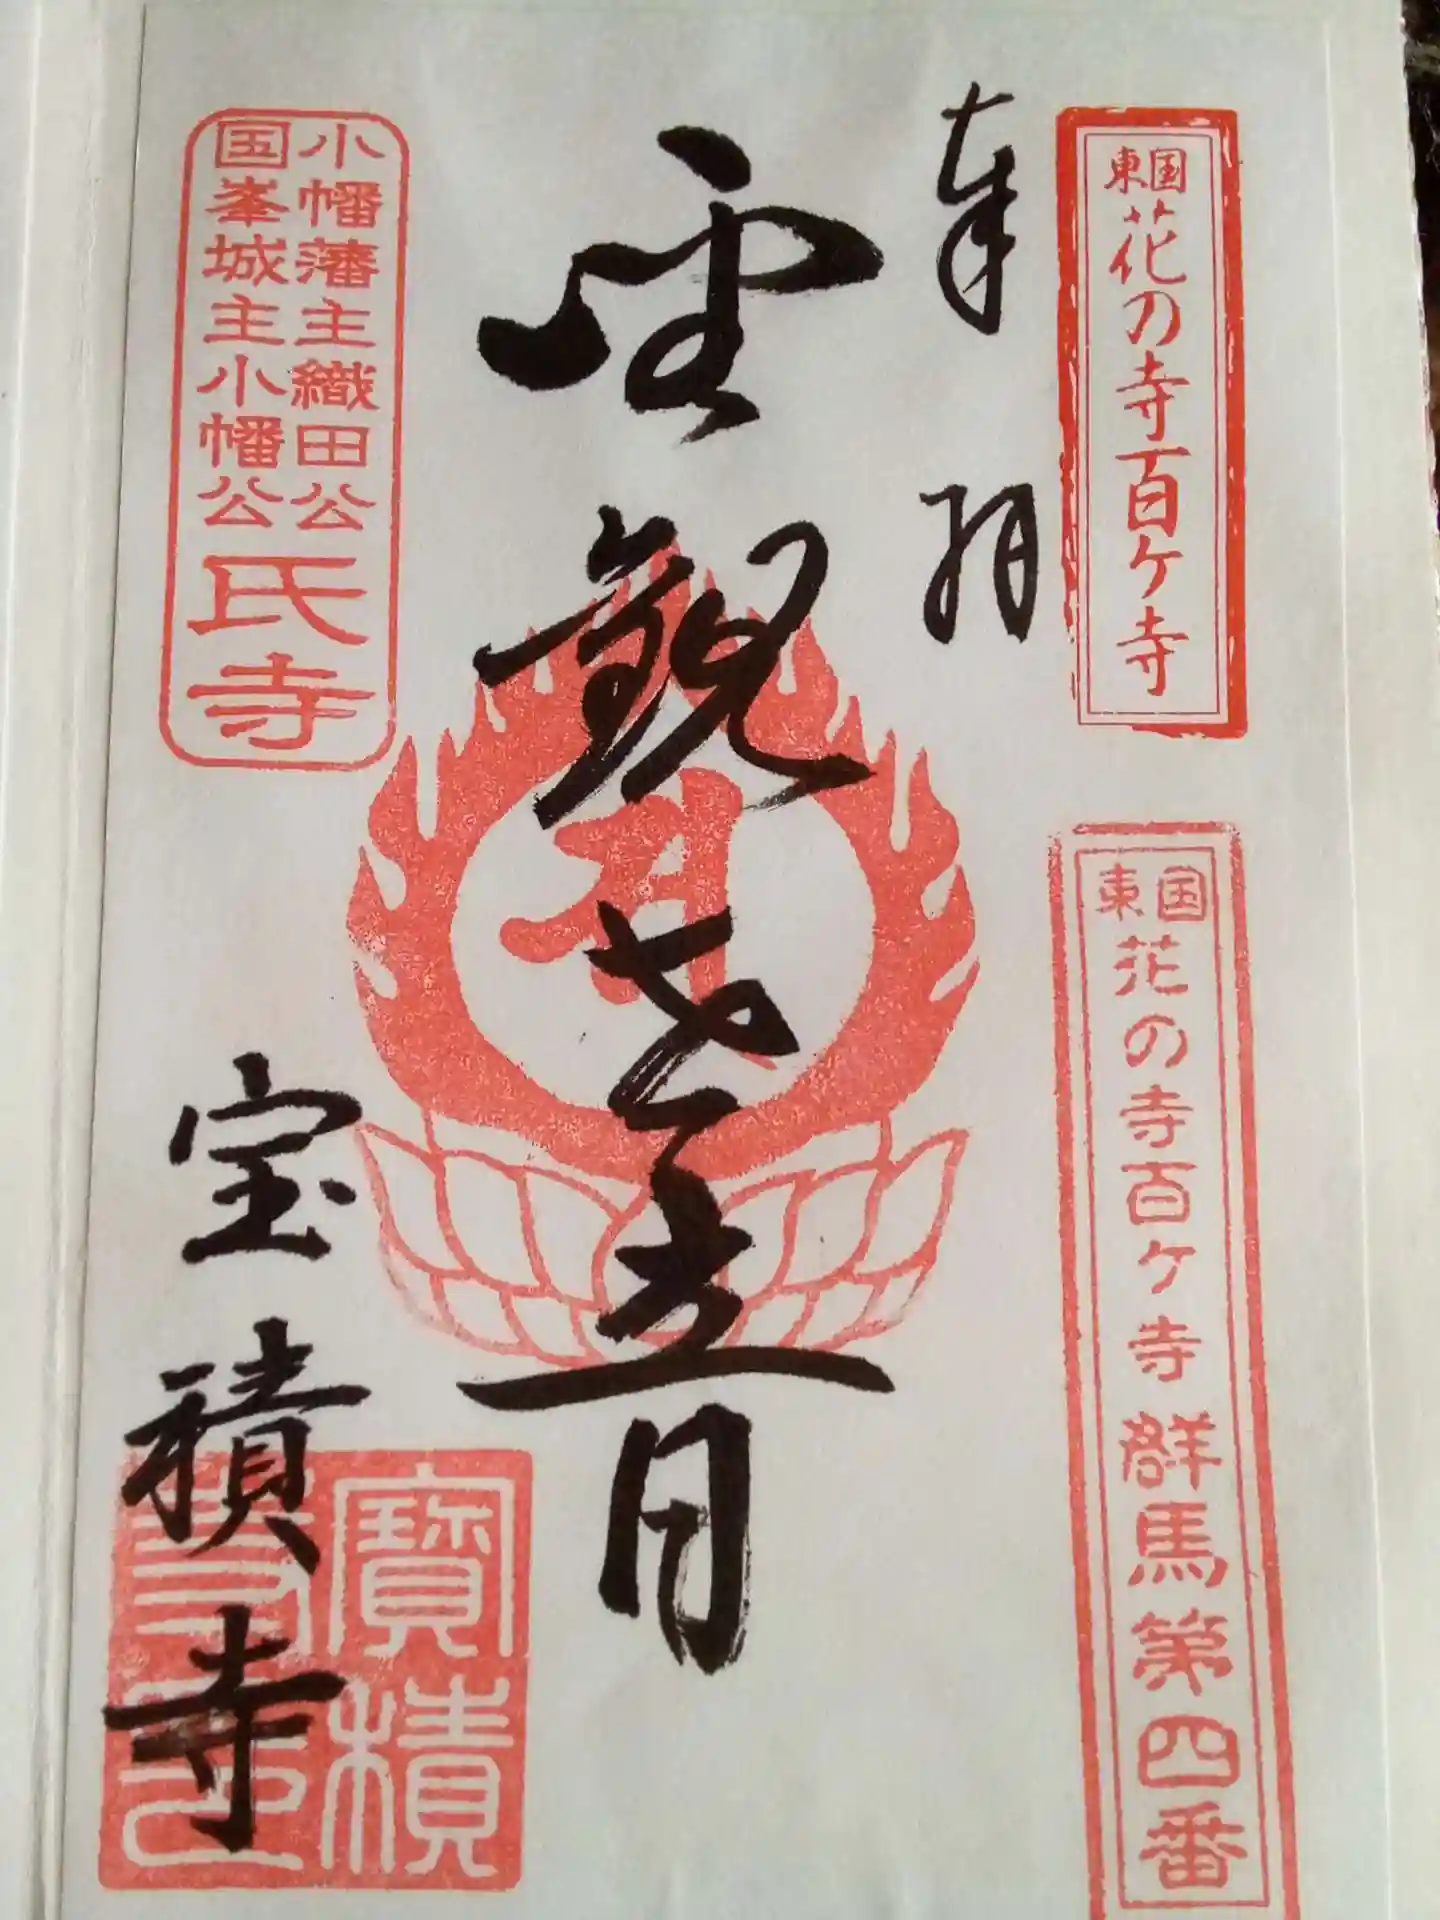 東国花の寺百ケ寺
東国花の寺百ケ寺 群馬第四番
奉拝
聖観世音
宝積寺
小幡藩主織田公
国峯城主小幡公
氏寺
寶積
寺印